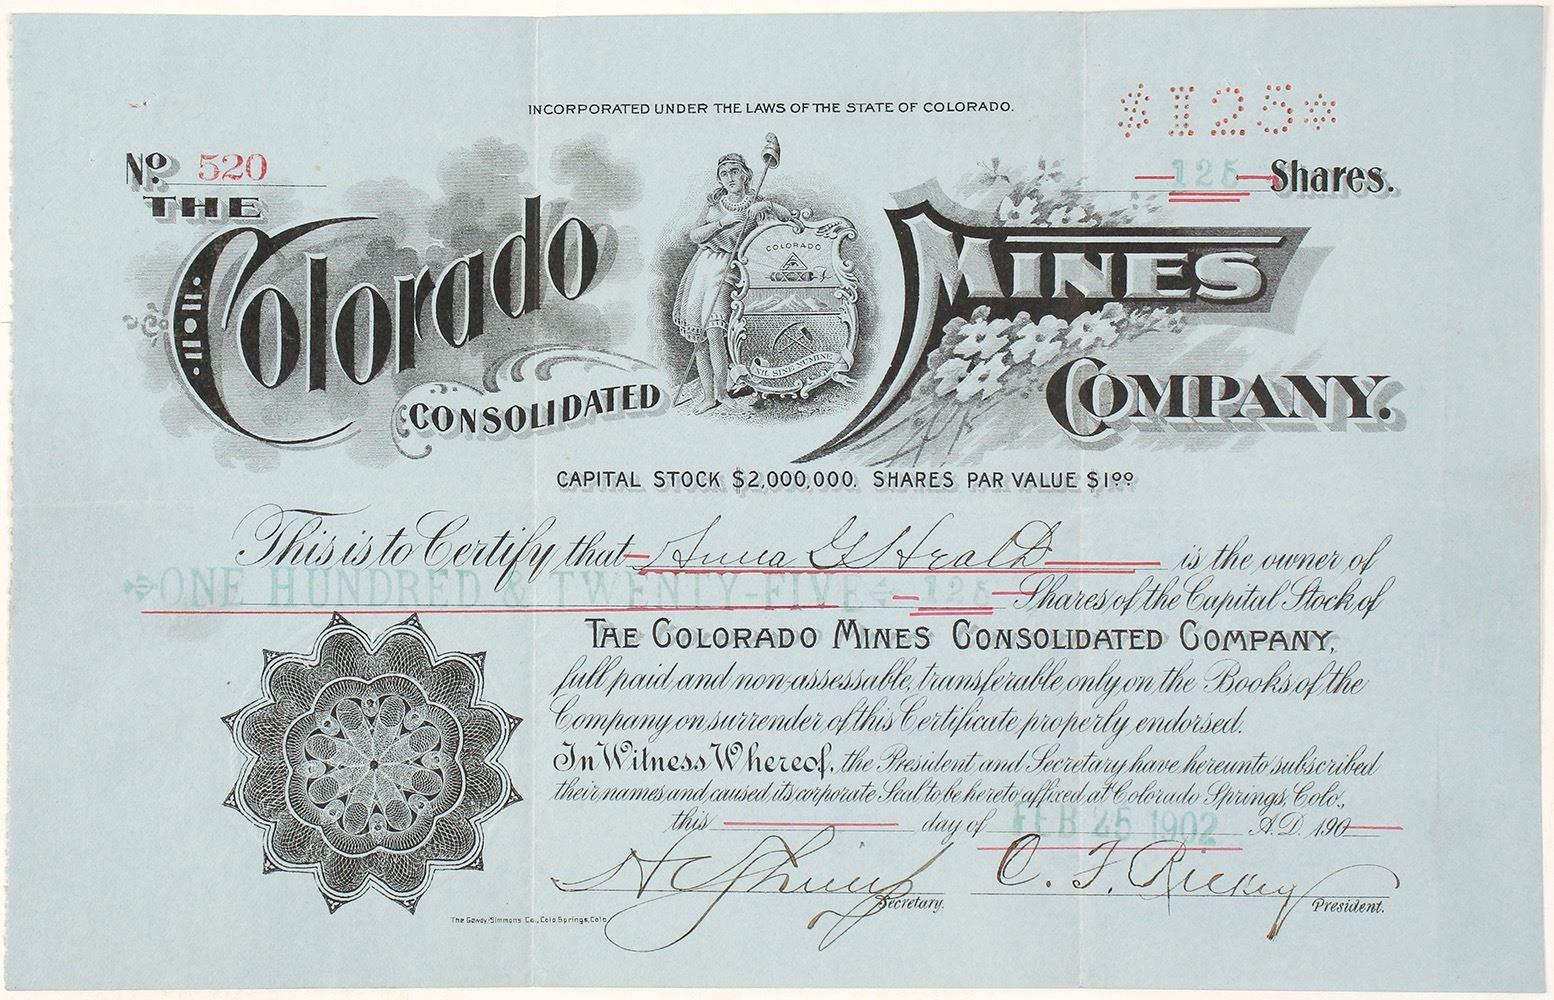 INCORPORATED UNDER THE LAWS OF THE STATE OF COLORADO.
$125
No. 520
125 Shares.
THE
Colorado
MINES
CONSOLIDATED
COMPANY.
COLORADO
NIL SINE NUMINE
CAPITAL STOCK $2,000,000. SHARES PAR VALUE $1.00
This is to Certify that Anna G Heald is the owner of
ONE HUNDRED & TWENTY-FIVE 125 Shares of the Capital Stock of
THE COLORADO MINES CONSOLIDATED COMPANY,
full paid and non-assessable, transferable only on the Books of the
Company on surrender of this Certificate properly endorsed.
In Witness Whereof, the President and Secretary have hereunto subscribed
their names and caused its corporate Seal to be hereto affixed at Colorado Springs, Colo.,
this day of FEB 25 1902 A.D. 190
C. F. Rickey
Secretary.
President.
The Gowdy-Simmons Co., Colo. Springs, Colo.